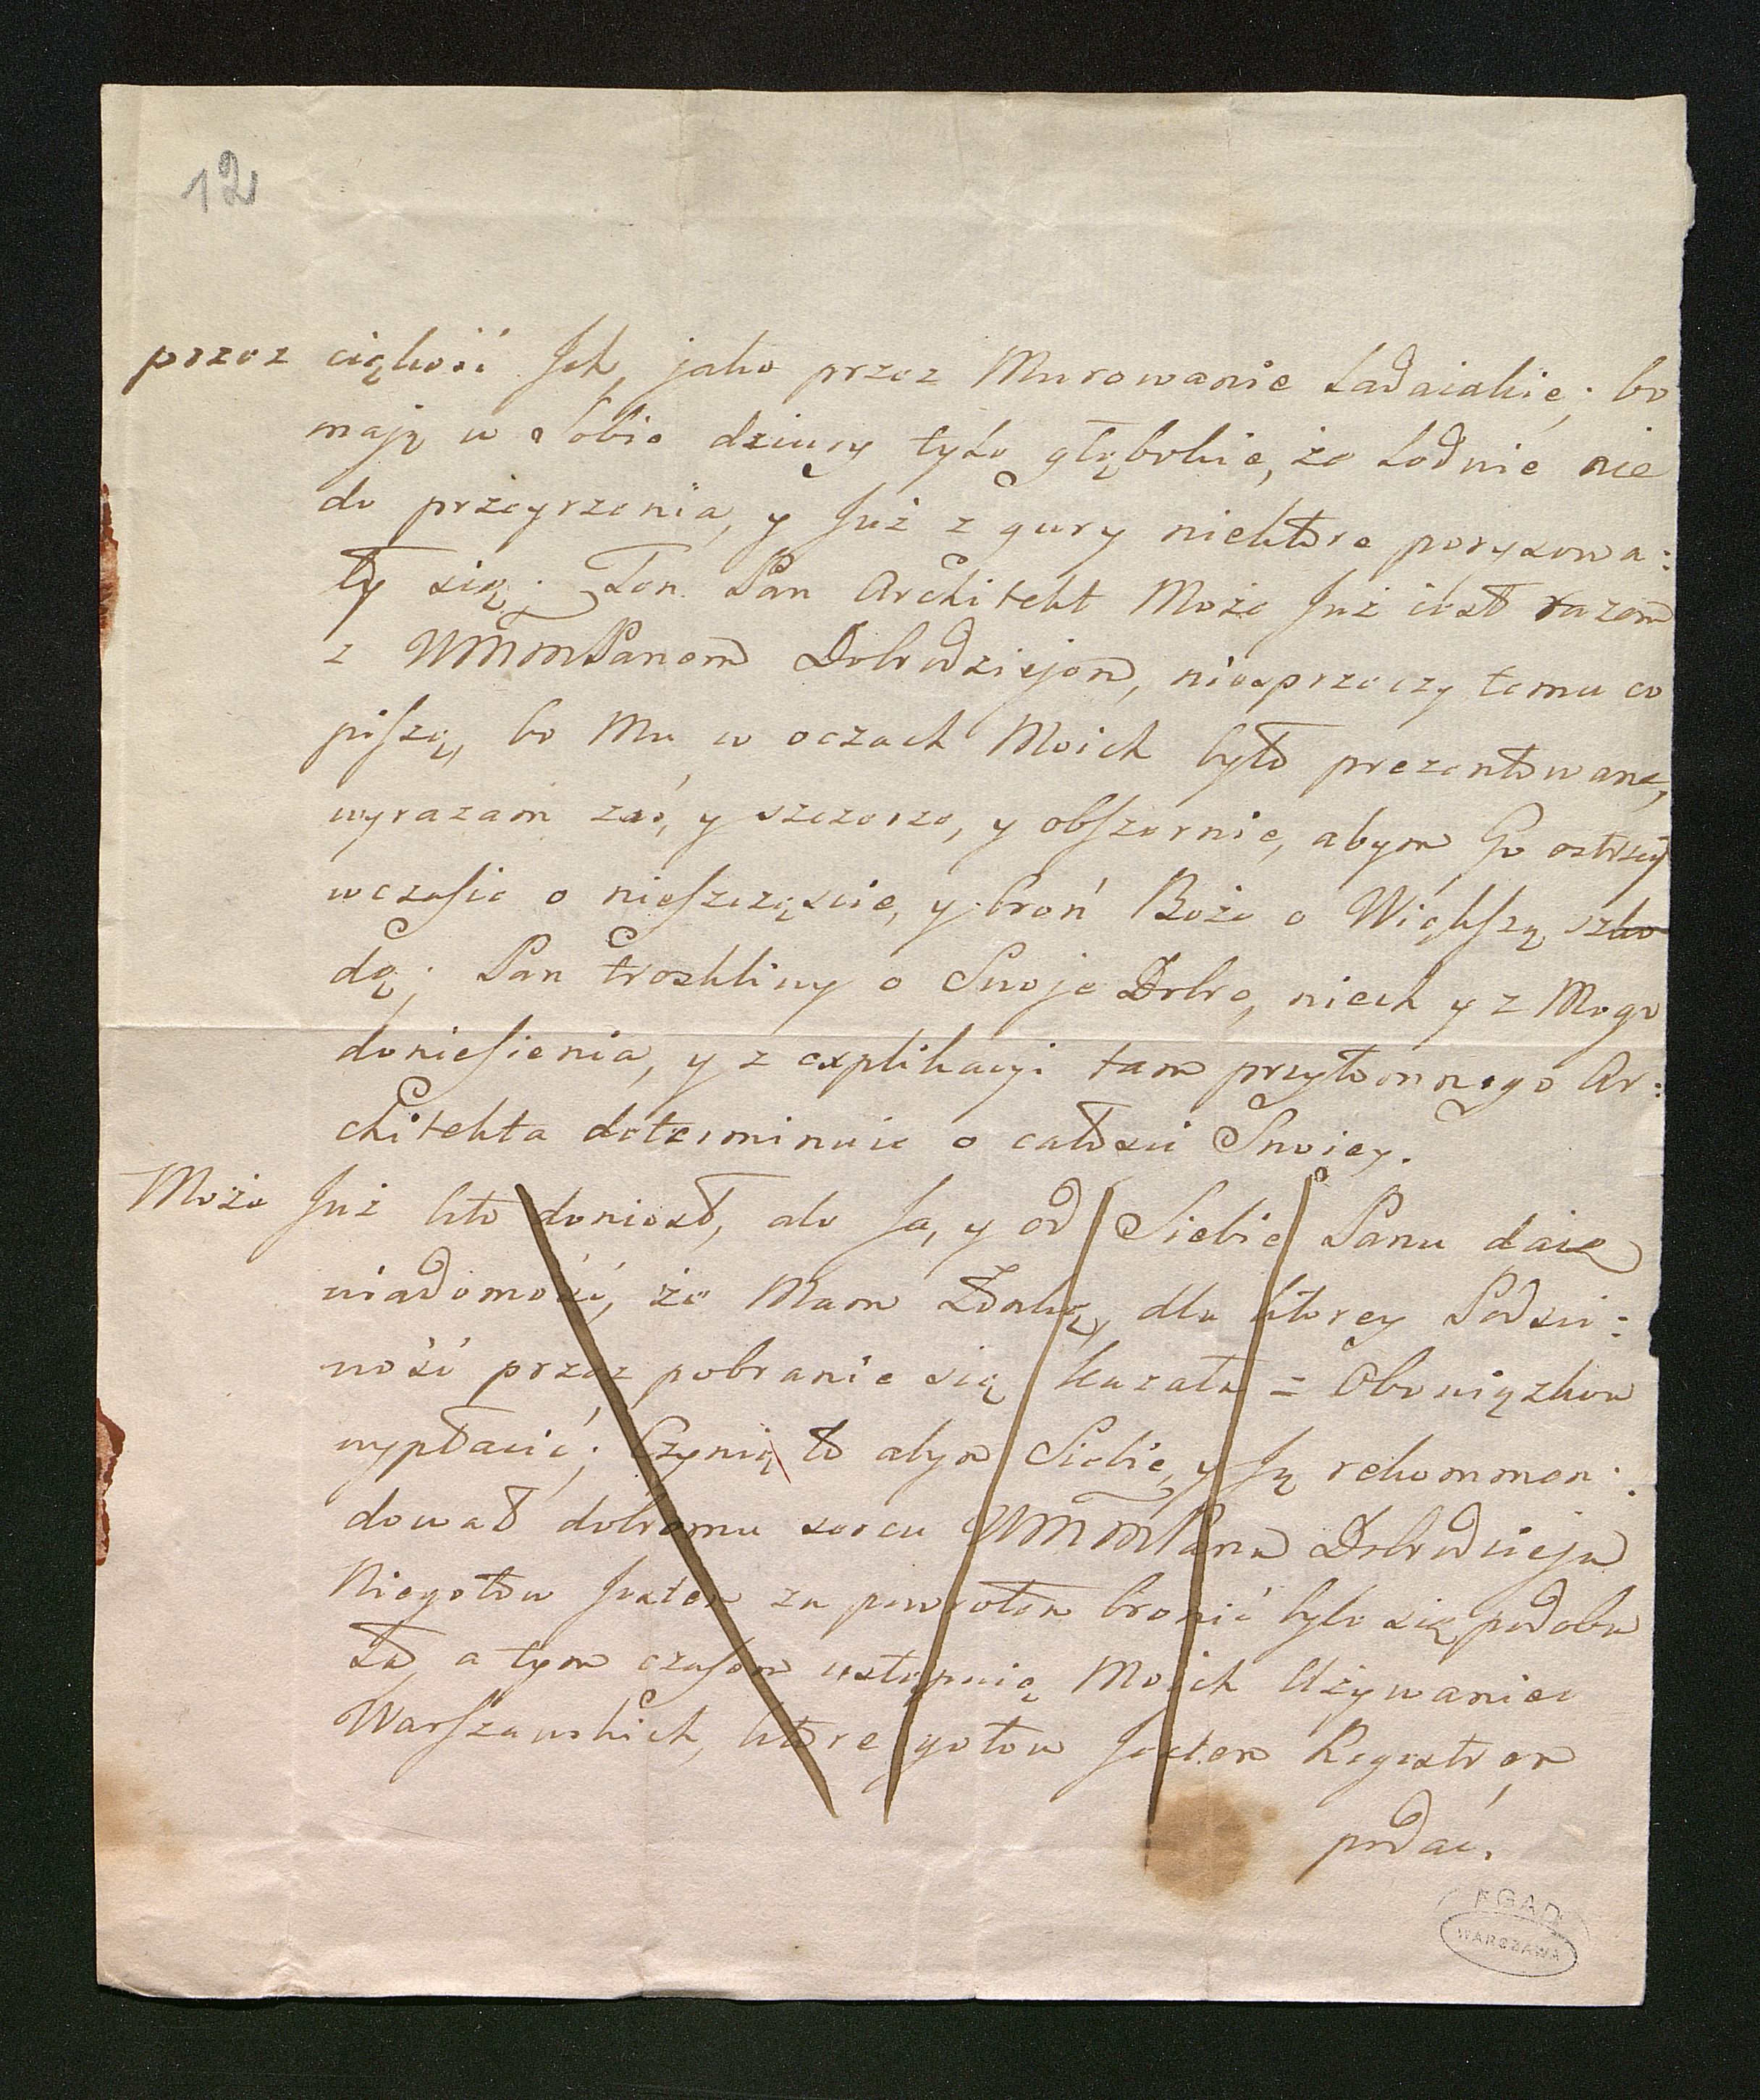 12
przez ciężkość Jch, jako przez Murowanie Ladaiakie; bo
mają w Sobie dziury tylo głębokie, że Ledwie nie
do przeyrzenia, y Już z gury niektóre porysowa:
ły się; Ten Pan Architekt Może Już iest razem
z WMMPanem Dobrodziejem, nieprzeczy temu co
piszę, bo Mu w oczach Moich było prezentowane,
wyrazam zaś, y szczerze, y obszernie, abym Go ostrzegł
wczasie o nieszczęscie, y broń Boże o Większą szko
dę; Pan troskliwy o Swoje Dobro, niech y z Mego
doniesienia, y z explikacyi tam przytomnego Ar:
chitekta determinuie o całości Swoiey.
Może Już kto doniosł, ale Ja, y od Siebie Panu daię
wiadomość, że Mam Żonkę, dla ktorey Podści:
wość przez pobranie się kazała z Obowiązkow
wypłacić; Czynię to abym Siebie, y Ją rekommen:
dował dobremu sercu WMMPana Dobrodzieja
Niegotow Jestem za powrotem bronić byle się podoba
ła, a tym czasem ustąpię Moich Używaniec
Warszawskich, które gotow Jestem Regestrem
podać.
AGAD
WARSZAWA